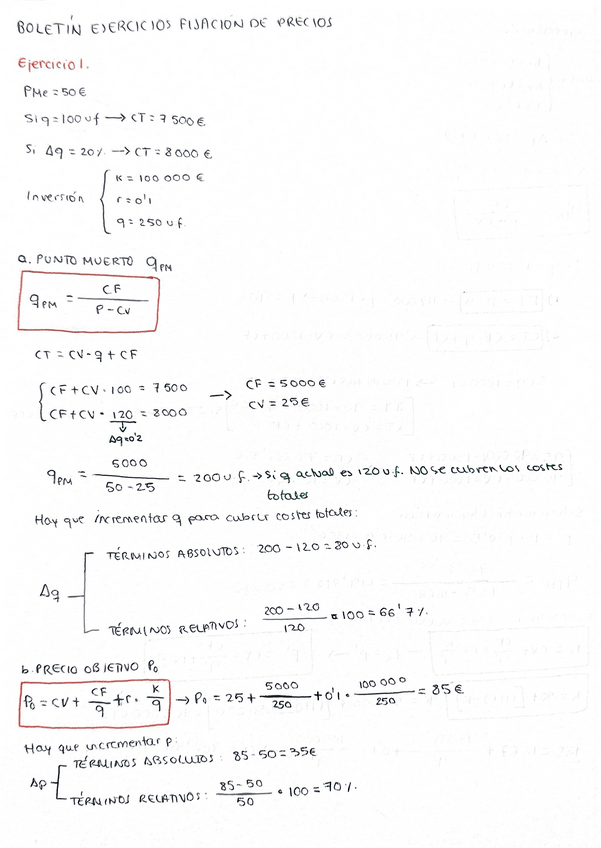 BOLETÍN EJERCICIOS FIJACIÓN DE PRECIOS
Ejercicio 1.
PMe = 50 €
Si q = 100 uf → CT = 7 500 €
Si Δq = 20% → CT = 8 000 €
Inversión { K = 100 000 €
r = 0'1
q = 250 u f.
a. PUNTO MUERTO qPM
qPM = CF / P - CV
CT = CV · q + CF
{ CF + CV · 100 = 7500 → CF = 5000 €
CF + CV · 120 = 8000 CV = 25 €
↓
Δq = 0'2
qPM = 5000 / 50 - 25 = 200 u f. → Si q actual es 120 u.f. NO se cubren los costes
totales
Hay que incrementar q para cubrir costes totales:
Δq
TÉRMINOS ABSOLUTOS: 200 - 120 = 80 u.f.
TÉRMINOS RELATIVOS: 200 - 120 / 120 · 100 = 66'7 %.
b. PRECIO OBJETIVO Po
Po = CV + CF / q + r · K / q → Po = 25 + 5000 / 250 + 0'1 · 100 000 / 250 = 85 €
Hay que incrementar p:
Δp
TÉRMINOS ABSOLUTOS: 85 - 50 = 35 €
TÉRMINOS RELATIVOS: 85 - 50 / 50 · 100 = 70 %.